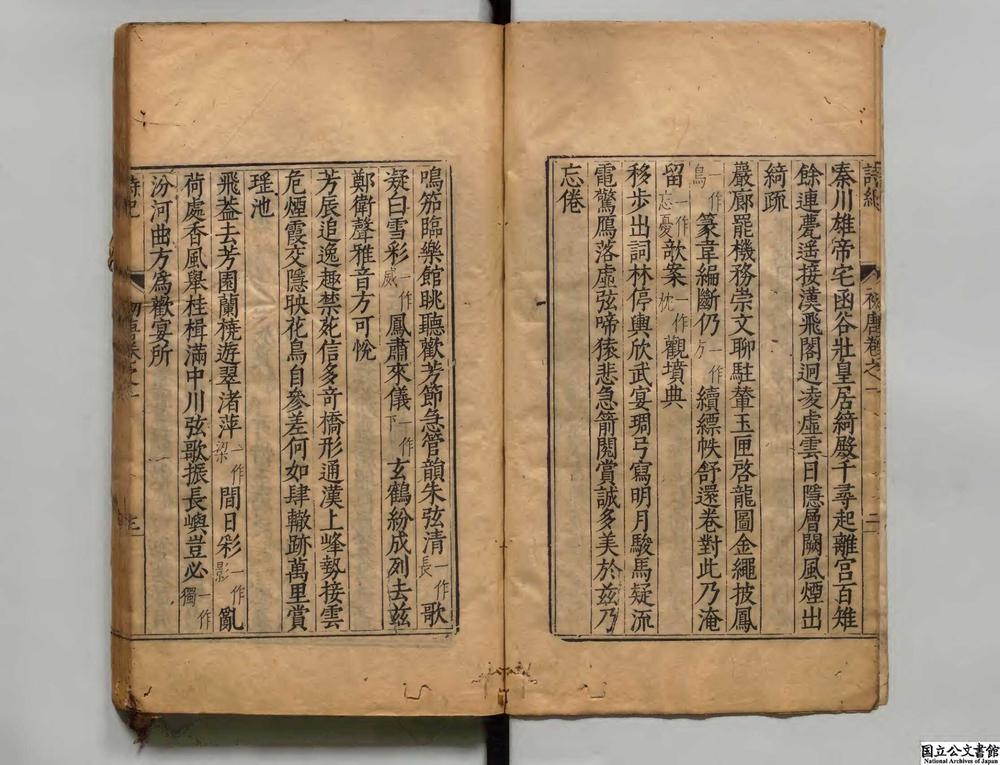 詩紀 初唐卷之一 二
秦川雄帝宅函谷壯皇居綺殿千尋起離宮百雉
餘連甍遥接漢飛閣迥凌虛雲日隱層闕風煙出
綺疏
巖廊罷機務崇文聊駐輦玉匣啓龍圖金繩披鳳
一作鳥篆韋編斷仍一作方續縹帙舒還卷對此乃淹
留一作忘憂歌案一作枕觀墳典
移步出詞林停輿欣武宴琱弓寫明月駿馬疑流
電驚鴈落虛弦啼猿悲急箭閱賞誠多美於兹乃
忘倦
鳴笳臨樂館眺聽歡芳節急管韻朱弦清一作長歌
凝白雪彩一作威鳳肅來儀一作下玄鶴紛成列去兹
鄭衛聲雅音方可悅
芳辰追逸趣禁苑信多竒橋形通漢上峰勢接雲
危煙霞交隱映花鳥自參差何如肆轍跡萬里賞
瑤池
飛葢去芳園蘭橈遊翠渚萍一作梁間日彩一作影亂
荷處香風舉桂楫滿中川弦歌振長嶼豈必一作獨
汾河曲方爲歡宴所
詩紀 初唐卷之一
国立公文書館
National Archives of Japan